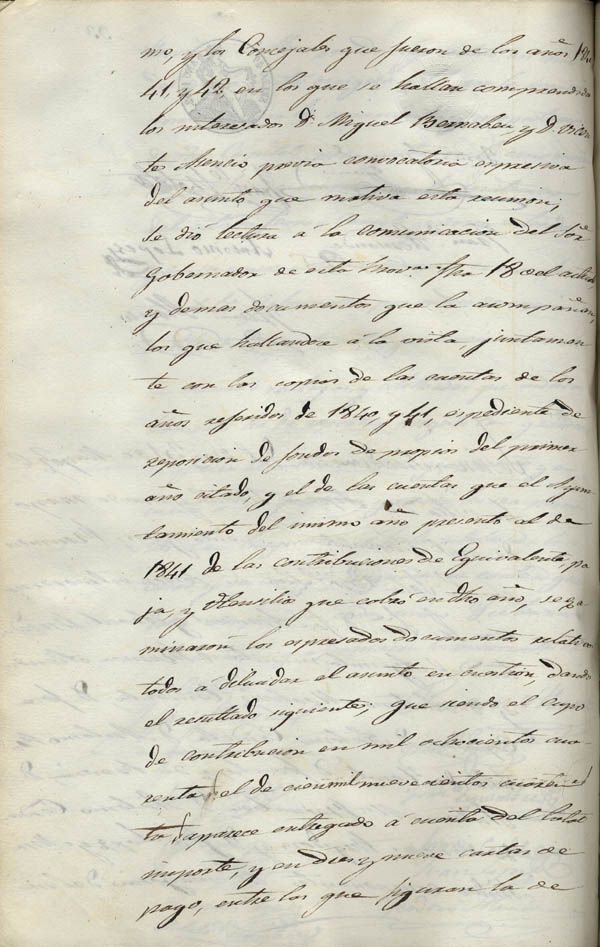 mo, y los Concejales que fueron de los años
41, y 42, en los que se hallan comprendidos
los interesados Dn. Miguel Bernabeu y D. Vicen
te Asencio previa convocatoria espresiva
del asunto que motiva esta reunion;
se dió lectura á la comunicacion del Sor.
Gobernador de esta Prova. fha 18 del actual,
y demas documentos que la acompañan,
los que hallandose á la vista, juntamen
te con las copias de las cuentas de los
años referidos de 1840, y 41, espediente de
reposicion de fondos de propios del primer
año citado, y el de las cuentas que el Ayun
tamiento del mismo año presentó al de
1841 de las contribuciones de Equivalente, pa
ja, y Utensilio que cobró en dho año, se exa
minaron los espresados documentos relativos
todos á dilucidar el asunto en cuestion, dando
el resultado siguiente; que siendo el cupo
de contribucion en mil ochocientos cua
renta, el de cien mil nuevecientos cuaren
ta, aparece entregado á cuenta del total
importe, y en diez y nueve cartas de
pago, entre los que figuran la de